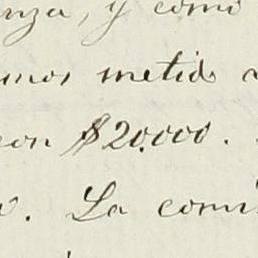 nza, y como
mos metido
con $20.000.
o. La comi